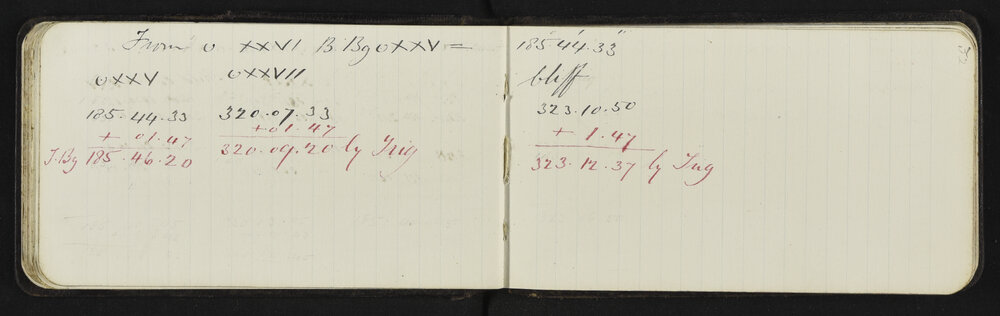 From o XXVI B Bg o XXV = 185° 44' 33"
o XXV o XXVII
185.44.33 320.07.33
+ 01.47 + 01.47
T.Bg 185.46.20 320.09.20 by Trig
bluff
323.10.50
+ 1.47
323.12.37 by Trig